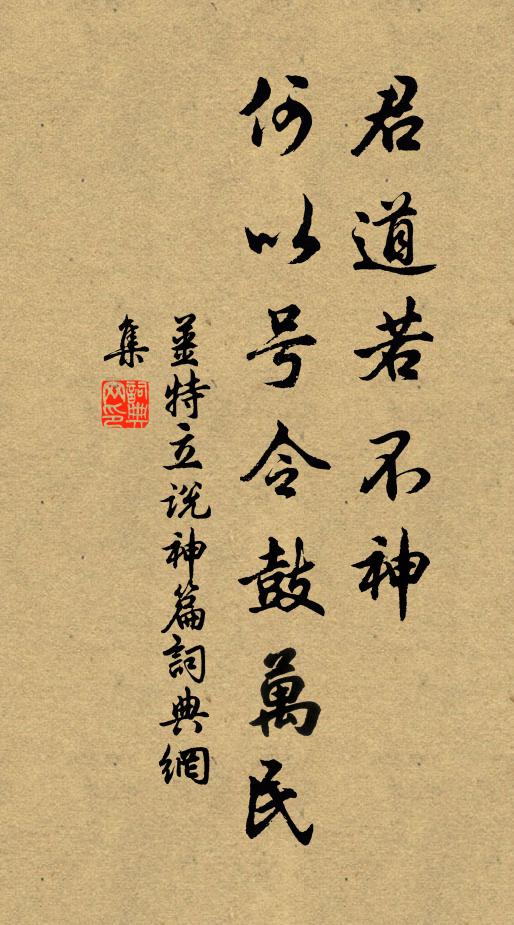 君道若不神
何以号令鼓萬民
姜特立说神篇詞典網
集
詞典
网印